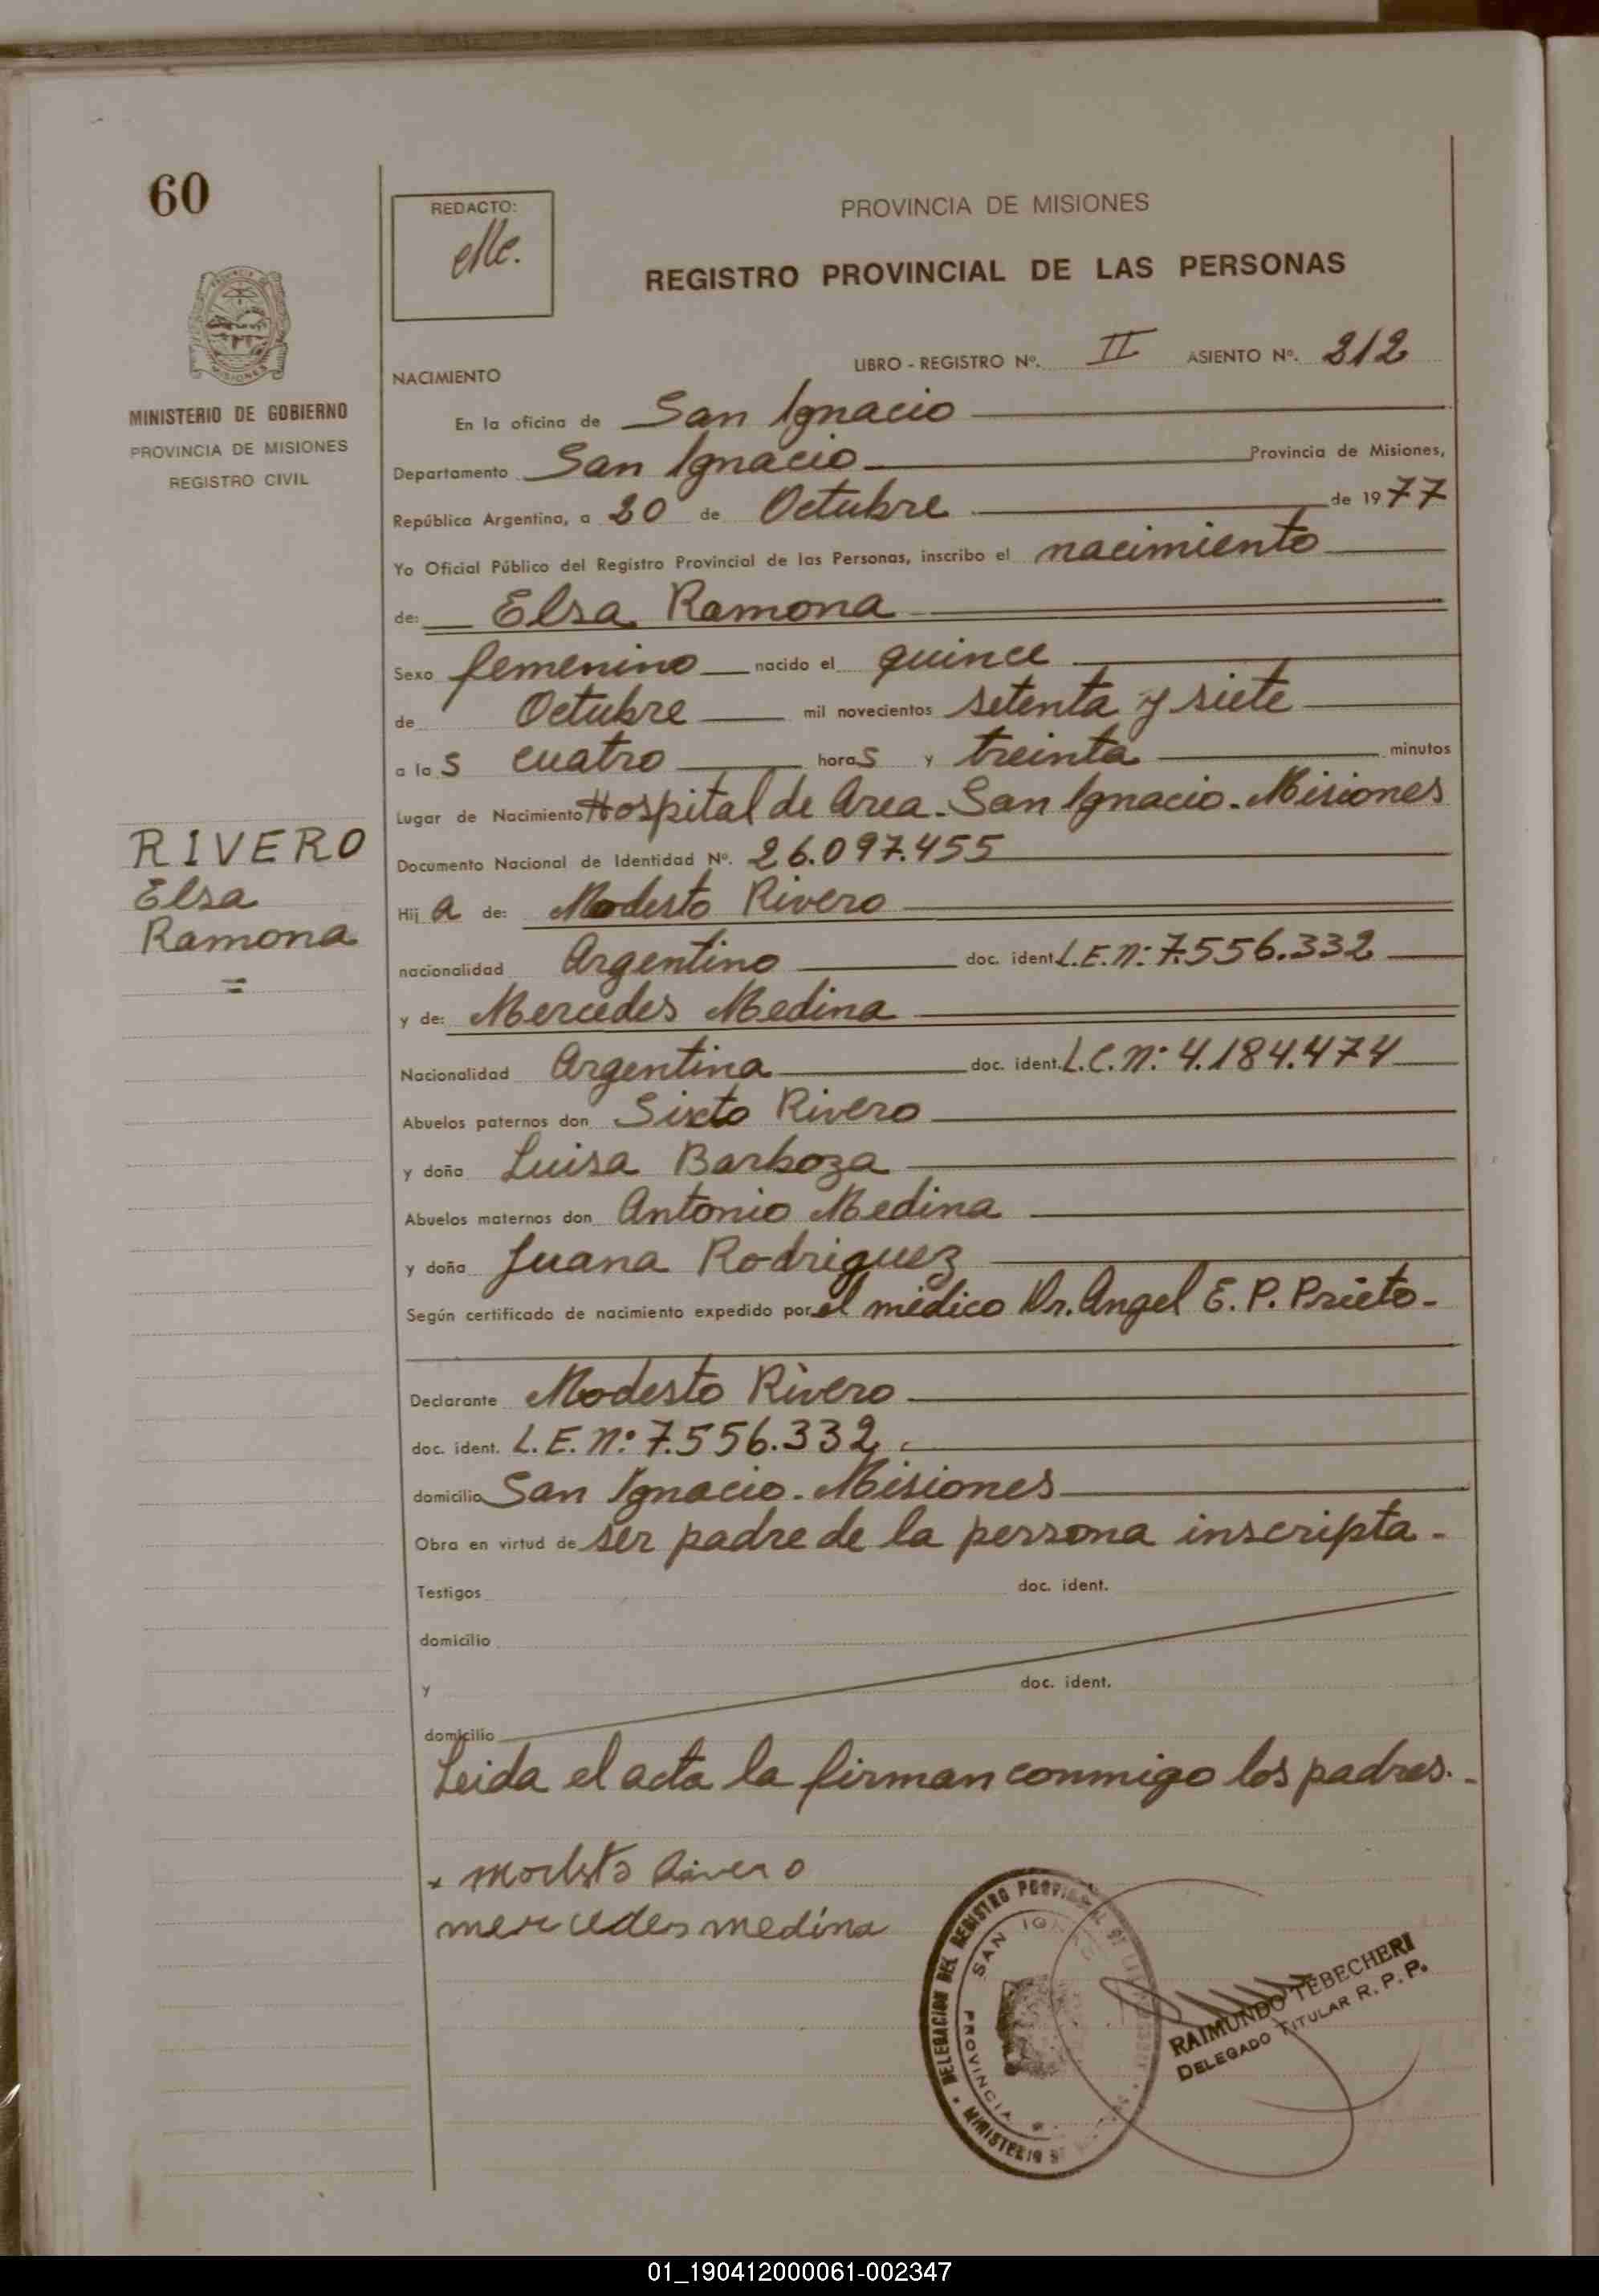 60
REDACTO:
PROVINCIA DE MISIONES
REGISTRO PROVINCIAL DE LAS PERSONAS
PROVINCIA DE
MISIONES
MINISTERIO DE GOBIERNO
PROVINCIA DE MISIONES
REGISTRO CIVIL
LIBRO - REGISTRO Nº. II ASIENTO Nº. 212
NACIMIENTO
En la oficina de San Ignacio
Departamento San Ignacio Provincia de Misiones,
República Argentina, a 20 de Octubre de 1977
Yo Oficial Público del Registro Provincial de las Personas, inscribo el nacimiento
de: Elsa Ramona
Sexo femenino nacido el quince
de Octubre mil novecientos setenta y siete
a las cuatro horas y treinta minutos
Lugar de Nacimiento Hospital de Area - San Ignacio - Misiones
RIVERO
Elsa
Ramona
=
Documento Nacional de Identidad Nº. 26.097.455
Hija de: Modesto Rivero
nacionalidad Argentino doc. ident. L.E.Nº: 7.556.332
y de: Mercedes Medina
Nacionalidad Argentina doc. ident. L.C.Nº: 4.184.474
Abuelos paternos don Sixto Rivero
y doña Luisa Barboza
Abuelos maternos don Antonio Medina
y doña Juana Rodriguez
Según certificado de nacimiento expedido por el médico Dr. Angel E. P. Prieto -
Declarante Modesto Rivero
doc. ident. L.E. Nº 7.556.332.
domicilio San Ignacio - Misiones
Obra en virtud de ser padre de la persona inscripta -
Testigos doc. ident.
domicilio
y doc. ident.
domicilio
Leida el acta la firman conmigo los padres. -
x modesto Rivero
mercedes medina
DELEGACION DEL REGISTRO PROVINCIAL DE LA
SAN IGN
PROVINCIA
MINISTERIO
RAIMUNDO TEBECHERI
DELEGADO TITULAR R. P. P.
01_190412000061-002347